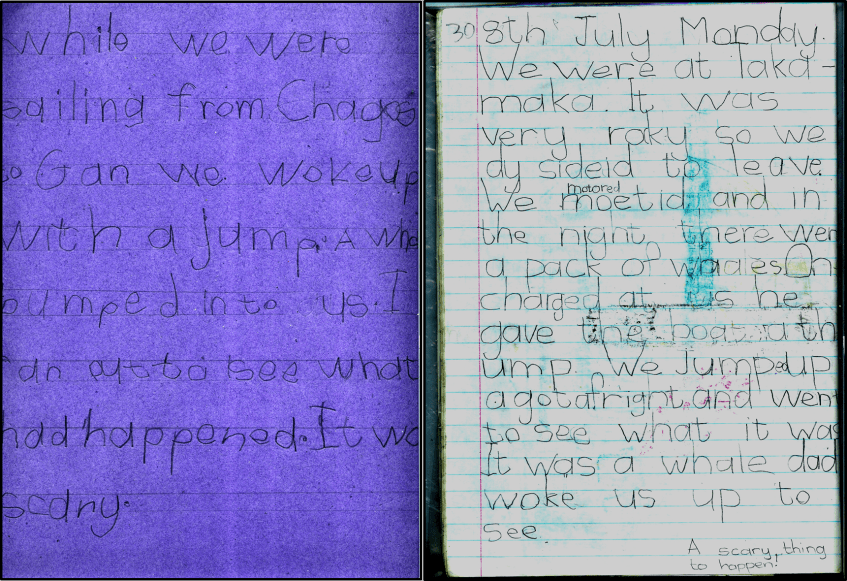 while we were
sailing from Chagos
to Gan we wokeup
with a jump. A wha
bumped into us. I
ran out to see what
had happened. It wa
scary.
30 8th July Monday.
We were at Taka-
maka. It was
very roky so we
dy sideid to leave.
We moetid motored and in
the night there wer
a pack of Oh
charged at us he
gave the boat a th
ump we Jumpedup
agotafright and went
to see what it was
It was a whale dad
woke us up to
see.
A scary thing
to happen!